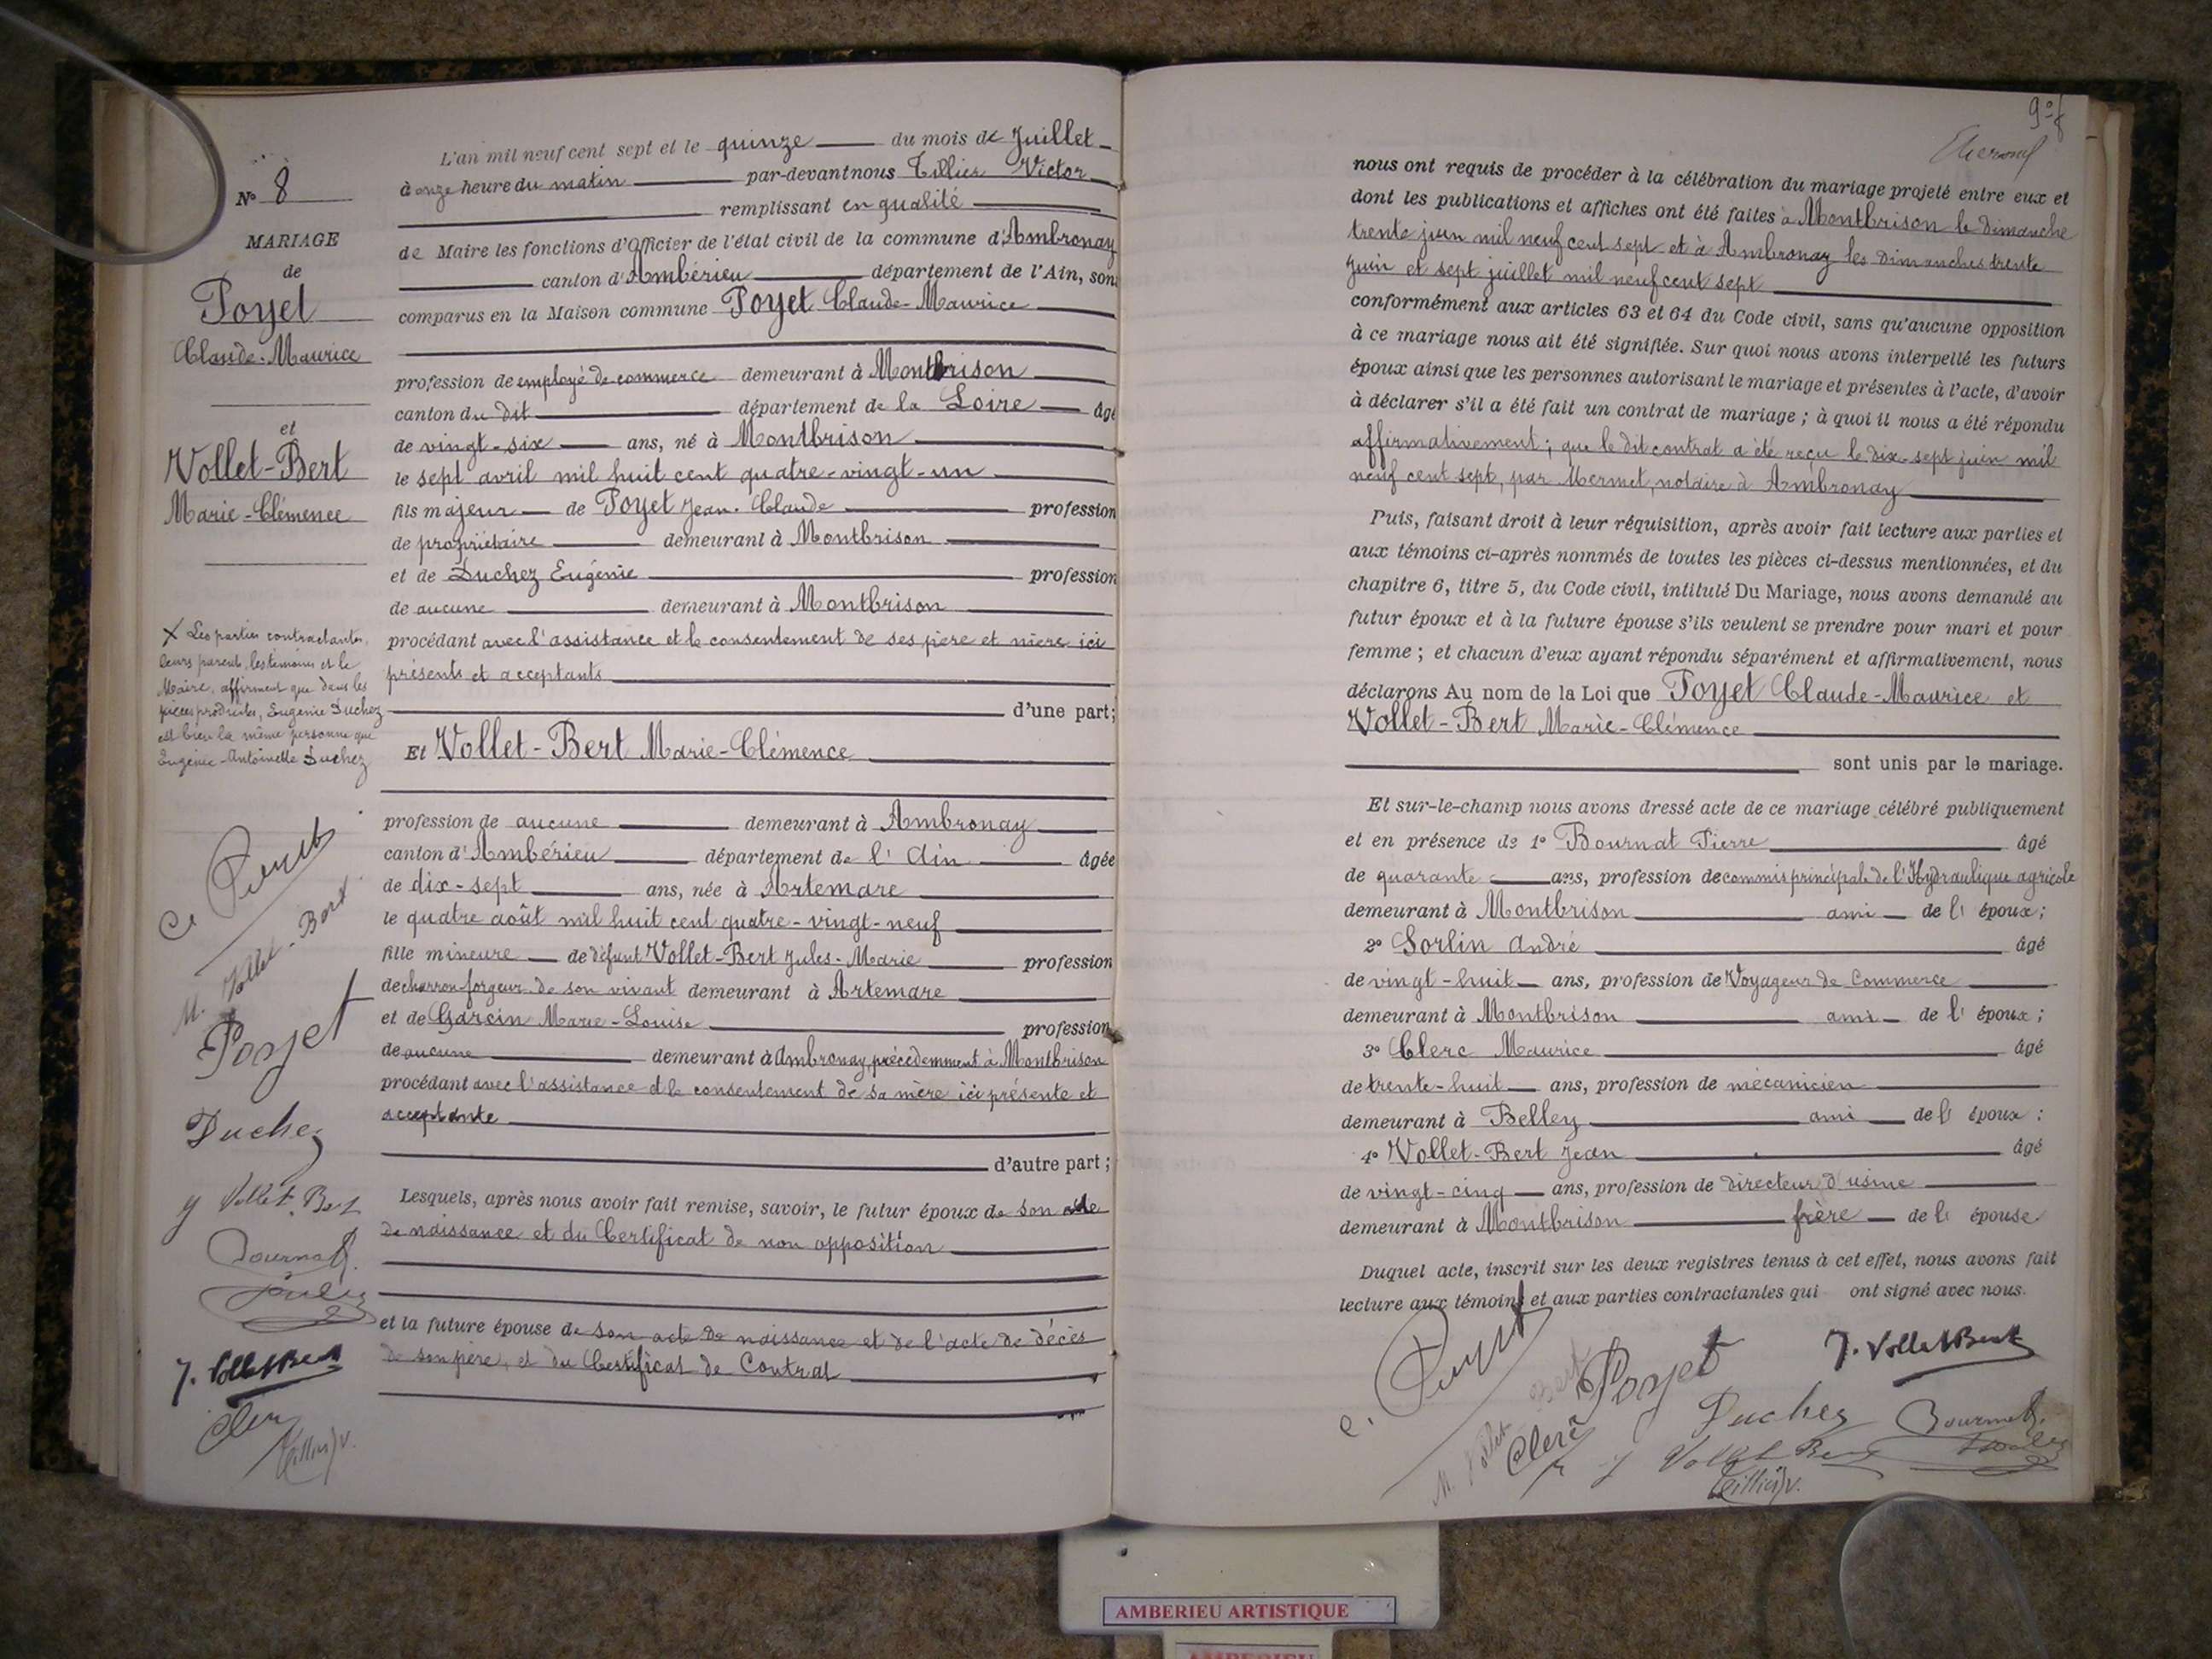 Nº 8
MARIAGE
de
Poyet
Claude-Maurice
et
Vollet-Bert
Marie-Clémence
X Les parties contractantes,
leurs parents, les témoins et le
Maire, affirment que dans les
pièces produites, Eugénie Duchez
est bien la même personne que
Eugénie-Antoinette Duchez
C. Poyet
M. Vollet-Bert
Poyet
Duchez
Vollet-Bert
Bournat
J. Vollet Bert
Clerc
Tillier V.
L'an mil neuf cent sept et le quinze du mois de Juillet
à onze heure du matin par-devant nous Tillier Victor
remplissant en qualité
de Maire les fonctions d'Officier de l'état civil de la commune d'Ambronay
canton d'Ambérieu département de l'Ain, son
comparus en la Maison commune Poyet Claude-Maurice
profession de employé de commerce demeurant à Montbrison
canton du dit département de la Loire âgé
de vingt-six ans, né à Montbrison
le sept avril mil huit cent quatre-vingt-un
fils majeur de Poyet Jean-Claude profession
de propriétaire demeurant à Montbrison
et de Duchez Eugénie profession
de aucune demeurant à Montbrison
procédant avec l'assistance et le consentement de ses père et mère ici
présents et acceptants
d'une part;
Et Vollet-Bert Marie-Clémence
profession de aucune demeurant à Ambronay
canton d'Ambérieu département de l'Ain âgée
de dix-sept ans, née à Artemare
le quatre août mil huit cent quatre-vingt-neuf
fille mineure de défunt Vollet-Bert Jules-Marie profession
de charron-forgeur de son vivant demeurant à Artemare
et de Garcin Marie-Louise profession
de aucune demeurant à Ambronay, précédemment à Montbrison
procédant avec l'assistance et le consentement de sa mère ici présente et
acceptante
d'autre part;
Lesquels, après nous avoir fait remise, savoir, le futur époux de son acte
de naissance et du Certificat de non opposition
et la future épouse de son acte de naissance et de l'acte de décès
de son père, et du Certificat de Contrat
9
nous ont requis de procéder à la célébration du mariage projeté entre eux et
dont les publications et affiches ont été faites à Montbrison le dimanche
trente juin mil neuf cent sept et à Ambronay les dimanches trente
juin et sept juillet mil neuf cent sept
conformément aux articles 63 et 64 du Code civil, sans qu'aucune opposition
à ce mariage nous ait été signifiée. Sur quoi nous avons interpellé les futurs
époux ainsi que les personnes autorisant le mariage et présentes à l'acte, d'avoir
à déclarer s'il a été fait un contrat de mariage; à quoi il nous a été répondu
affirmativement; que le dit contrat a été reçu le dix-sept juin mil
neuf cent sept, par Mermet, notaire à Ambronay
Puis, faisant droit à leur réquisition, après avoir fait lecture aux parties et
aux témoins ci-après nommés de toutes les pièces ci-dessus mentionnées, et du
chapitre 6, titre 5, du Code civil, intitulé Du Mariage, nous avons demandé au
futur époux et à la future épouse s'ils veulent se prendre pour mari et pour
femme; et chacun d'eux ayant répondu séparément et affirmativement, nous
déclarons Au nom de la Loi que Poyet Claude-Maurice et
Vollet-Bert Marie-Clémence
sont unis par le mariage.
Et sur-le-champ nous avons dressé acte de ce mariage célébré publiquement
et en présence de 1º Bournat Pierre âgé
de quarante ans, profession de commis principal de l'Hydraulique agricole
demeurant à Montbrison ami de l' époux;
2º Sorlin André âgé
de vingt-huit ans, profession de Voyageur de Commerce
demeurant à Montbrison ami de l' époux;
3º Clerc Maurice âgé
de trente-huit ans, profession de mécanicien
demeurant à Belley ami de l' époux:
4º Vollet-Bert Jean âgé
de vingt-cinq ans, profession de directeur d'usine
demeurant à Montbrison frère de l' épouse
Duquel acte, inscrit sur les deux registres tenus à cet effet, nous avons fait
lecture aux témoins et aux parties contractantes qui ont signé avec nous.
C. Poyet
M. Vollet Bert
Poyet
J. Vollet Bert
Clerc
Duchez
Bournat
Vollet Bert
Tillier V.
AMBERIEU ARTISTIQUE
AMBERIEU